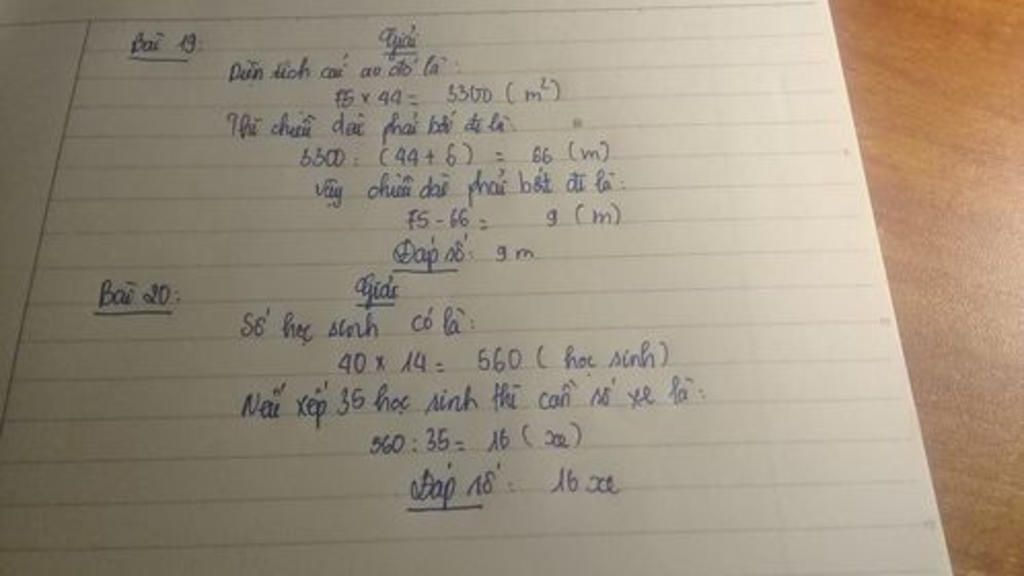 Bài 19: Giải
Diện tích cái ao đó là:
75 x 44 = 3300 (m²)
Thì chiều dài phải bớt đi là:
3300 : (44 + 6) = 66 (m)
Vậy chiều dài phải bớt đi là:
75 - 66 = 9 (m)
Đáp số: 9 m
Bài 20: Giải
Số học sinh có là:
40 x 14 = 560 (học sinh)
Nếu xếp 35 học sinh thì cần số xe là:
560 : 35 = 16 (xe)
Đáp số: 16 xe